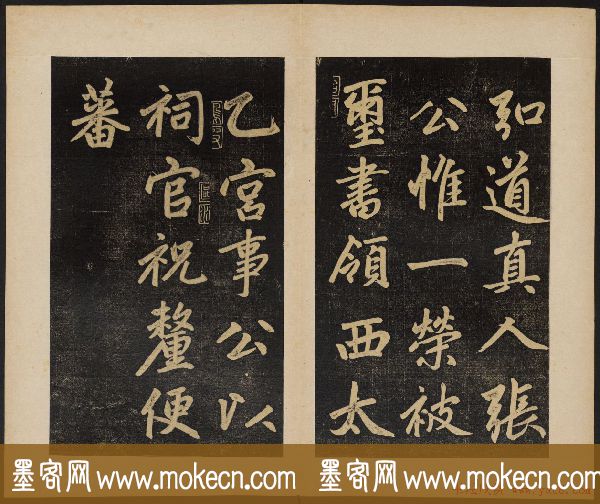 弘道真人張
公惟一榮被
璽書領西太
乙宮事公以
祠官祝釐便
蕃
墨客网 www.mokecn.com
墨客网 www.mokecn.com